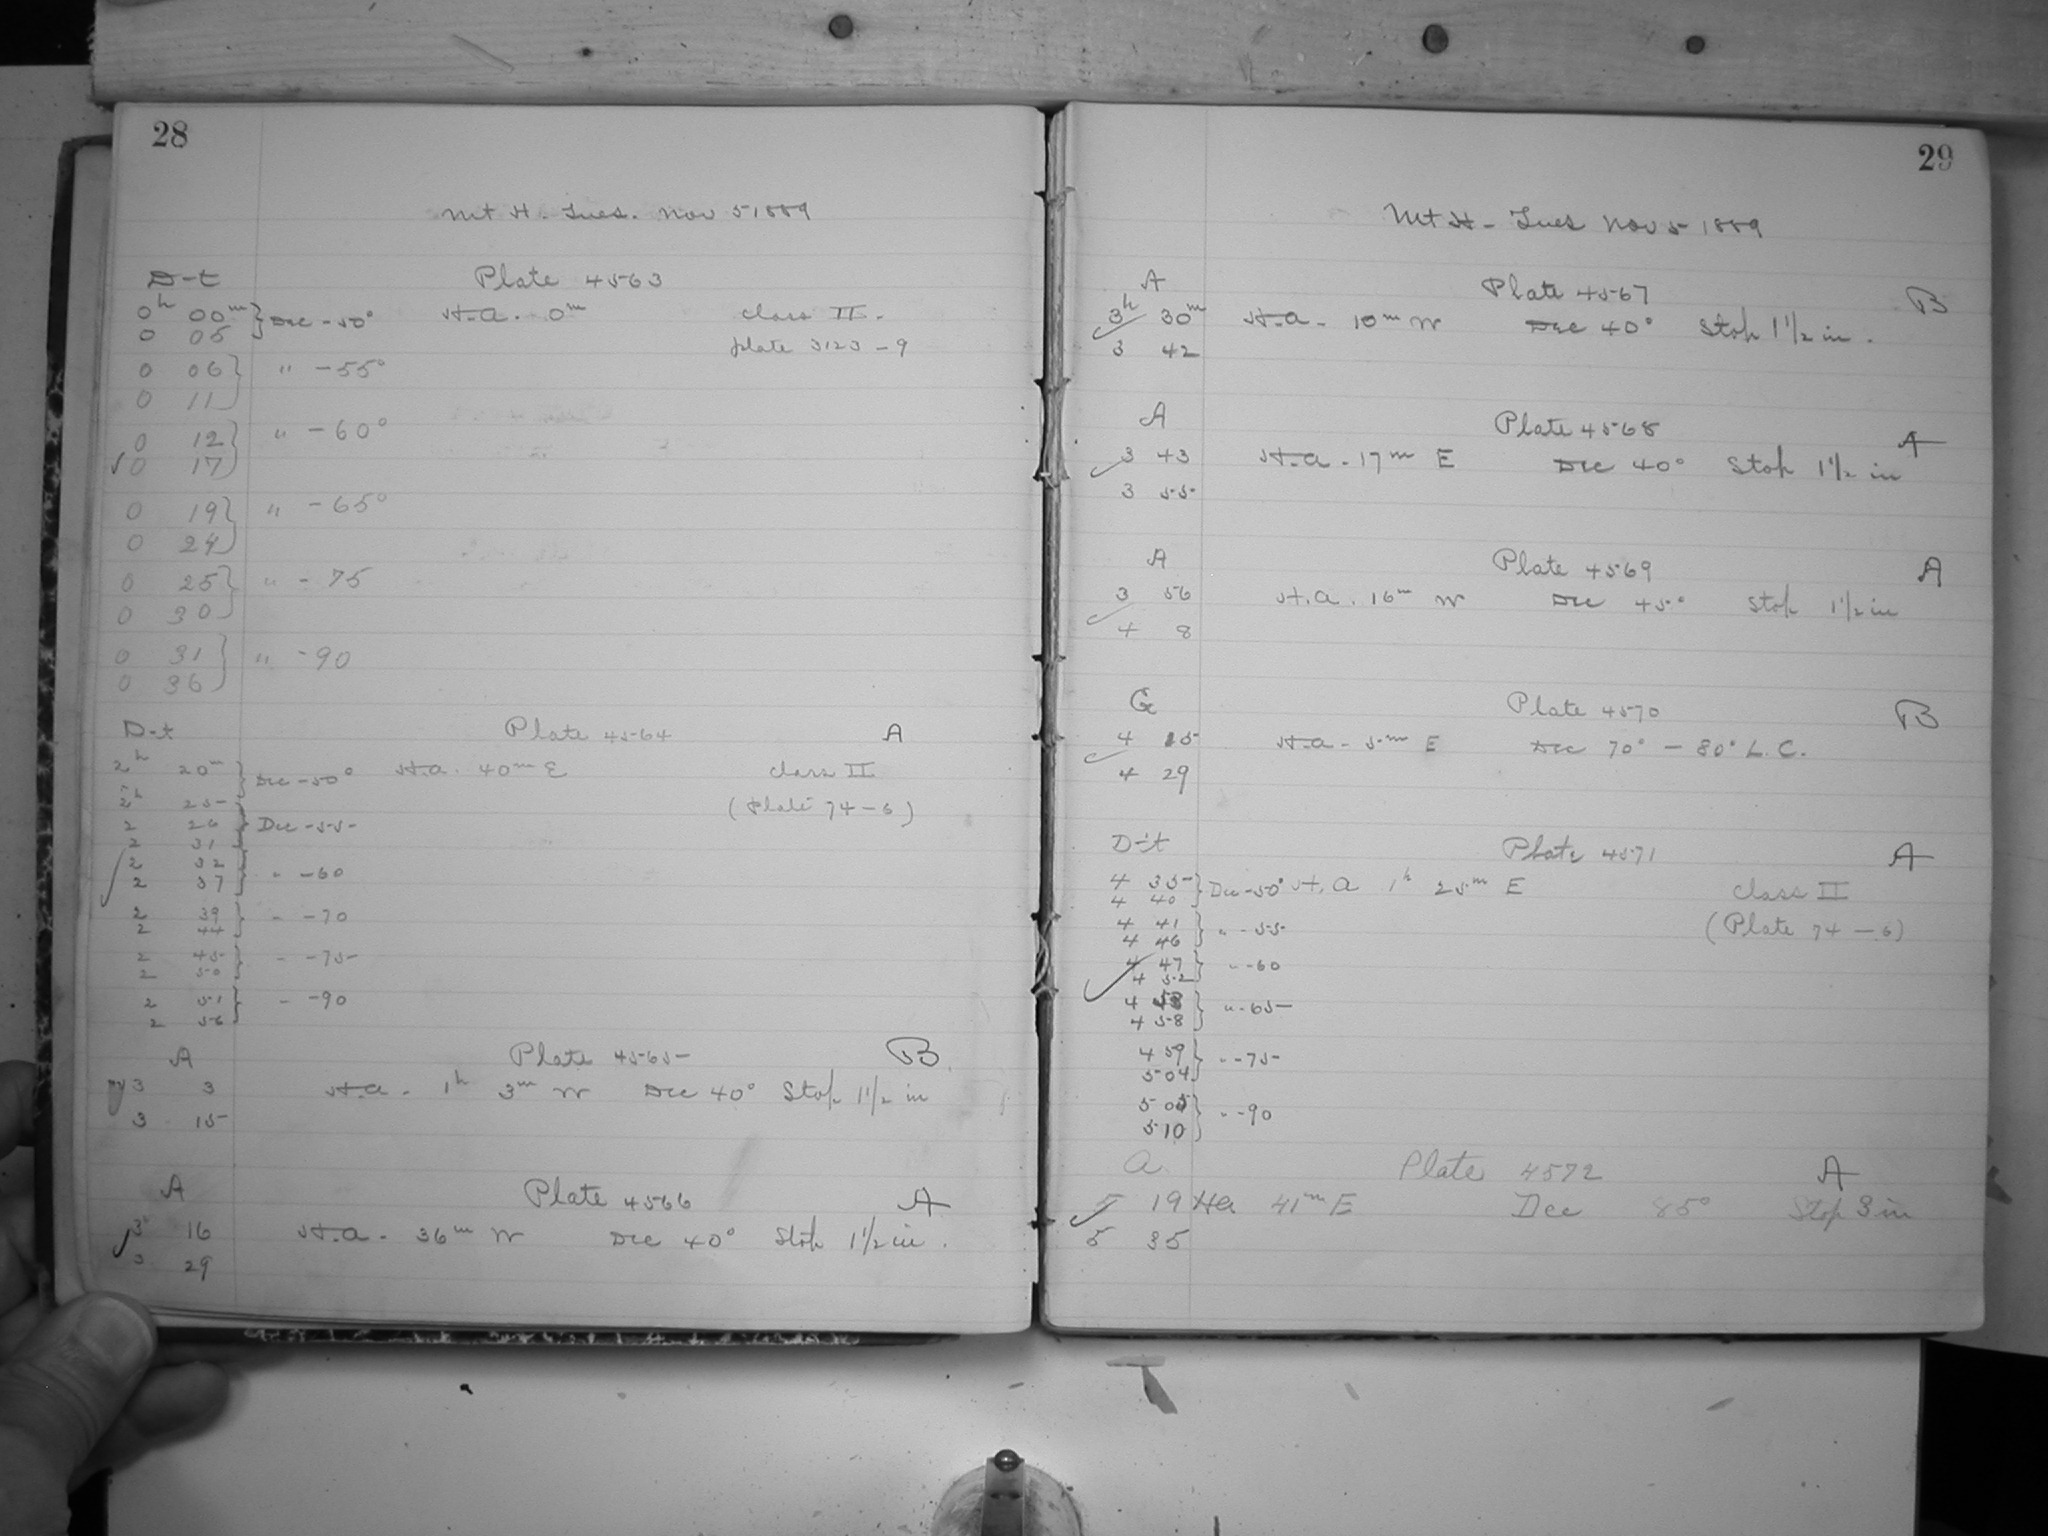 28
Mt H. Tues. Nov 5 1889
D-t Plate 4563
0h 00m } Dec -50° H.A. 0m class II.
0 05 plate 3123-9
0 06 } " -55°
0 11
0 12 } " -60°
0 17
0 19 } " -65°
0 24
0 25 } " -75
0 30
0 31 } " -90
0 36
D-t Plate 4564 A
2h 20m } Dec -50° H.A. 40m E class II
2h 25 (Plate 74-6)
2 26 } Dec -55
2 31
2 32 } " -60
2 37
2 39 } " -70
2 44
2 45 } " -75
2 50
2 51 } " -90
2 56
A Plate 4565 B
3 3 H.A. 1h 3m W Dec 40° Stop 1 1/2 in
3 15
A Plate 4566 A
3 16 H.A. 36m W Dec 40° Stop 1 1/2 in.
3 29
29
Mt H- Tues Nov 5 1889
A Plate 4567 B
3h 30m H.A. 10m W Dec 40° Stop 1 1/2 in.
3 42
A Plate 4568 A
3 43 H.A. 17m E Dec 40° Stop 1 1/2 in
3 55
A Plate 4569 A
3 56 H.A. 16m W Dec 45° Stop 1 1/2 in
4 8
G Plate 4570 B
4 15 H.A. 5m E Dec 70° - 80° L.C.
4 29
D-t Plate 4571 A
4 35 } Dec -50° H.A 1h 25m E Class II
4 40
4 41 } " -55 (Plate 74-6)
4 46
4 47 } " -60
4 52
4 53 } " -65
4 58
4 59 } " -75
5 04
5 05 } " -90
5 10
A Plate 4572 A
5 19 Ha 41m E Dec 85° Stop 3 in
5 35